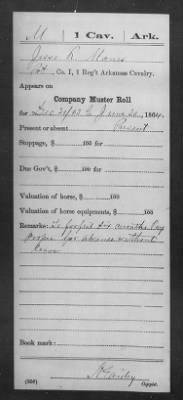 M | 1 Cav. | Ark.
Jesse R. Mares
Pvt, Co. I, 1 Reg't Arkansas Cavalry.
Appears on
Company Muster Roll
for Dec 31/63 to June 30, 1864.
Present or absent Present
Stoppage, $ 100 for
Due Gov't, $ 100 for
Valuation of horse, $ 100
Valuation of horse equipments, $ 100
Remarks: To forfeit six months pay
proper for absence without
leave
Book mark:
(858)
Copyist.